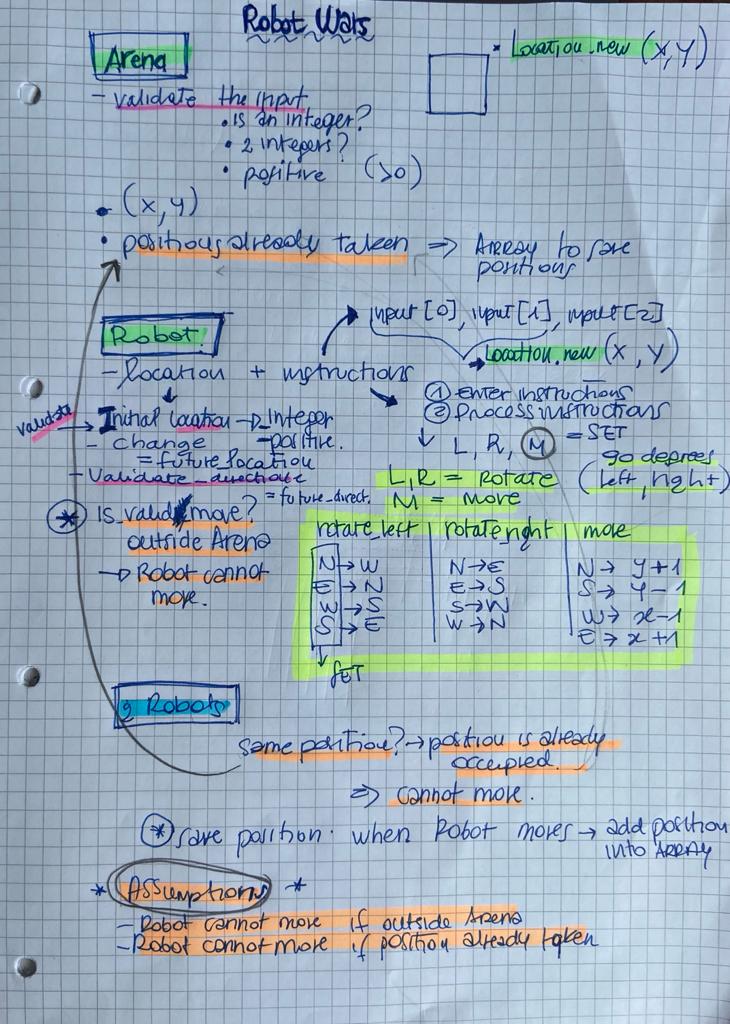 Robot Wars
Arena
* Location.new (x,y)
- validate the input
• is an integer?
• 2 integers?
• positive (>0)
• (x,y)
• positions already taken => ARRAY to save
positions
input [0], input [1], input [2]
Robot
Location.new (x, y)
- location + instructions
① Enter instructions
② Process instructions
validate → Initial location → integer
- positive.
- change
= future_location
L, R, M = SET
- Validate_directione
= future_direct.
L, R = Rotate (90 degrees
left, right)
M = move
* is_valid_move?
outside Arena
→ Robot cannot
move.
rotate_left | rotate right | move
N → W N → E N → y+1
E → N E → S S → y-1
W → S S → W W → x-1
S → E W → N E → x+1
SET
2 Robots
same position? → position is already
occupied.
=> cannot move.
* save position when Robot moves → add position
into ARRAY
* Assumptions *
- Robot cannot move if outside Arena
- Robot cannot move if position already taken